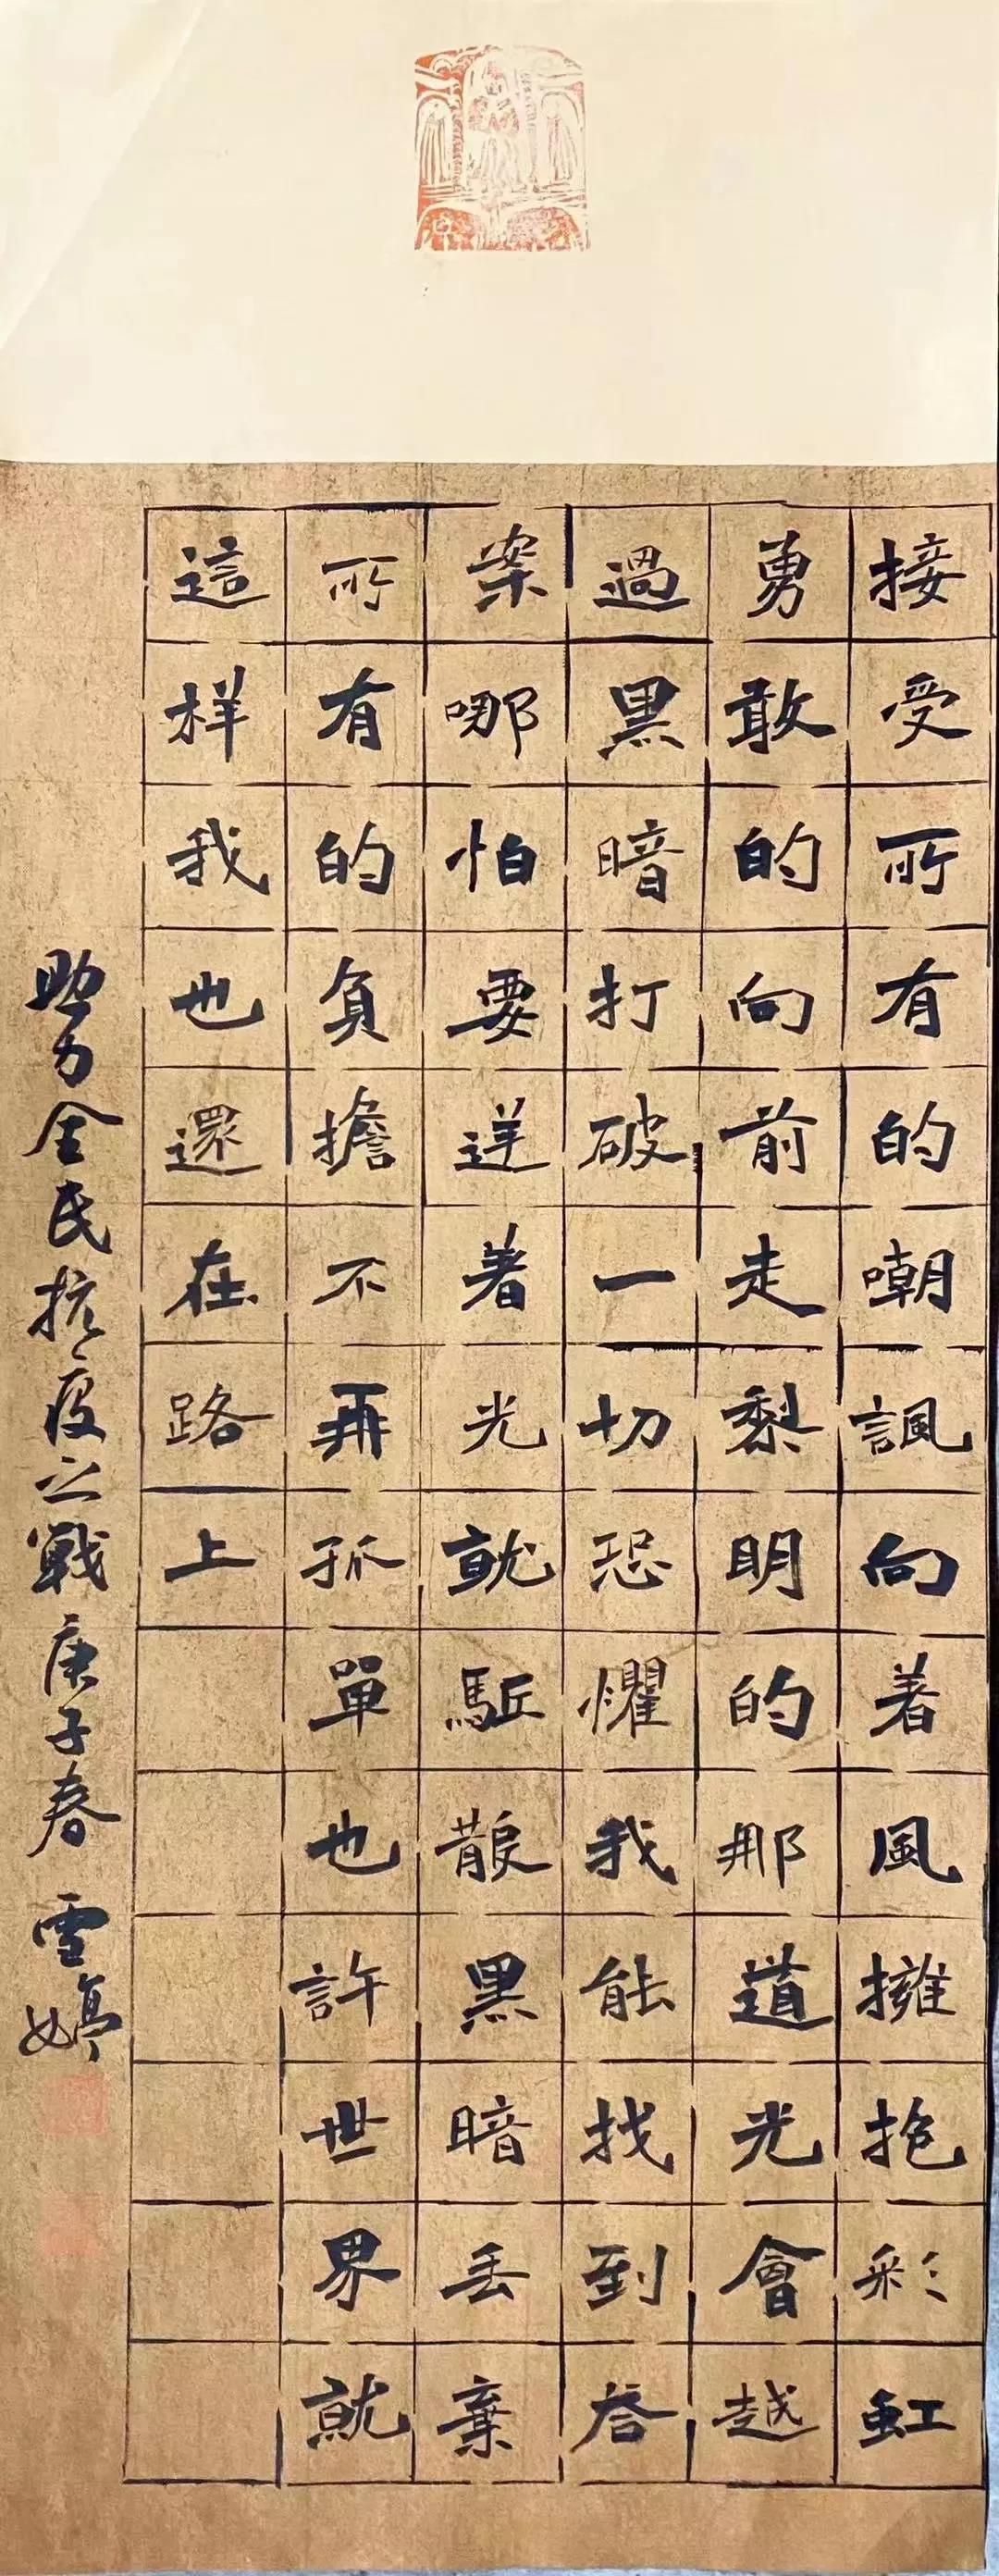 接受所有的嘲諷向着風擁抱彩虹
勇敢的向前走黎明的那道光會越
過黑暗打破一切恐懼我能找到答
案哪怕要逆着光就駈散黑暗丢棄
所有的負擔不再孤單也許世界就
這样我也還在路上
助力全民抗疫之戰庚子春 雪婷